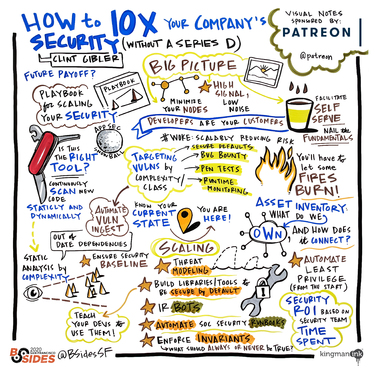 HOW to 10X YOUR COMPANY'S
SECURITY (WITHOUT A SERIES D)
CLINT GIBLER
VISUAL NOTES
SPONSORED BY:
PATREON
@patreon
FUTURE PAYOFF?
PLAYBOOK
FOR SCALING
YOUR SECURITY
PLAYBOOK
BIG PICTURE
MINIMIZE
YOUR NODES
HIGH
SIGNAL,
LOW
NOISE
DEVELOPERS ARE YOUR CUSTOMERS
FACILITATE
SELF
SERVE
NAIL the
FUNDAMENTALS
APP SEC
SNOWBALL
IS THIS
THE RIGHT
TOOL?
CONTINUOUSLY
SCAN NEW
CODE
STATICLY AND
DYNAMICALLY
* WOKE: SCALABLY REDUCING RISK
TARGETING
VULNS BY
COMPLEXITY/
CLASS
SECURE DEFAULTS
BUG BOUNTY
PEN TESTS
RUNTIME
MONITORING
YOU'll HAVE to
let some
FIRES
BURN!
AUTOMATE
VULN
INGEST
KNOW YOUR
CURRENT
STATE
YOU ARE
HERE!
ASSET INVENTORY:
WHAT DO WE
OWN,
AND HOW DOES
it CONNECT?
OUT OF
DATE DEPENDENCIES
STATIC
ANALYSIS by
COMPLEXITY
ENSURE SECURITY
BASELINE
TEACH
YOUR DEVS to
USE THEM!
SCALING
THREAT
MODELING
BUILD LIBRARIES/TOOLS to
BE SECURE by DEFAULT
IR BOTS
AUTOMATE SOC SECURITY RUNBOOKS
ENFORCE INVARIANTS
WHAT SHOULD ALWAYS or NEVER BE TRUE?
AUTOMATE
LEAST
PRIVILEGE
(FROM the START)
SECURITY
ROI BASED on
SECURITY TEAM
TIME
SPENT
BSIDES
2020
SAN FRANCISCO
@BSidesSF
kingmanink